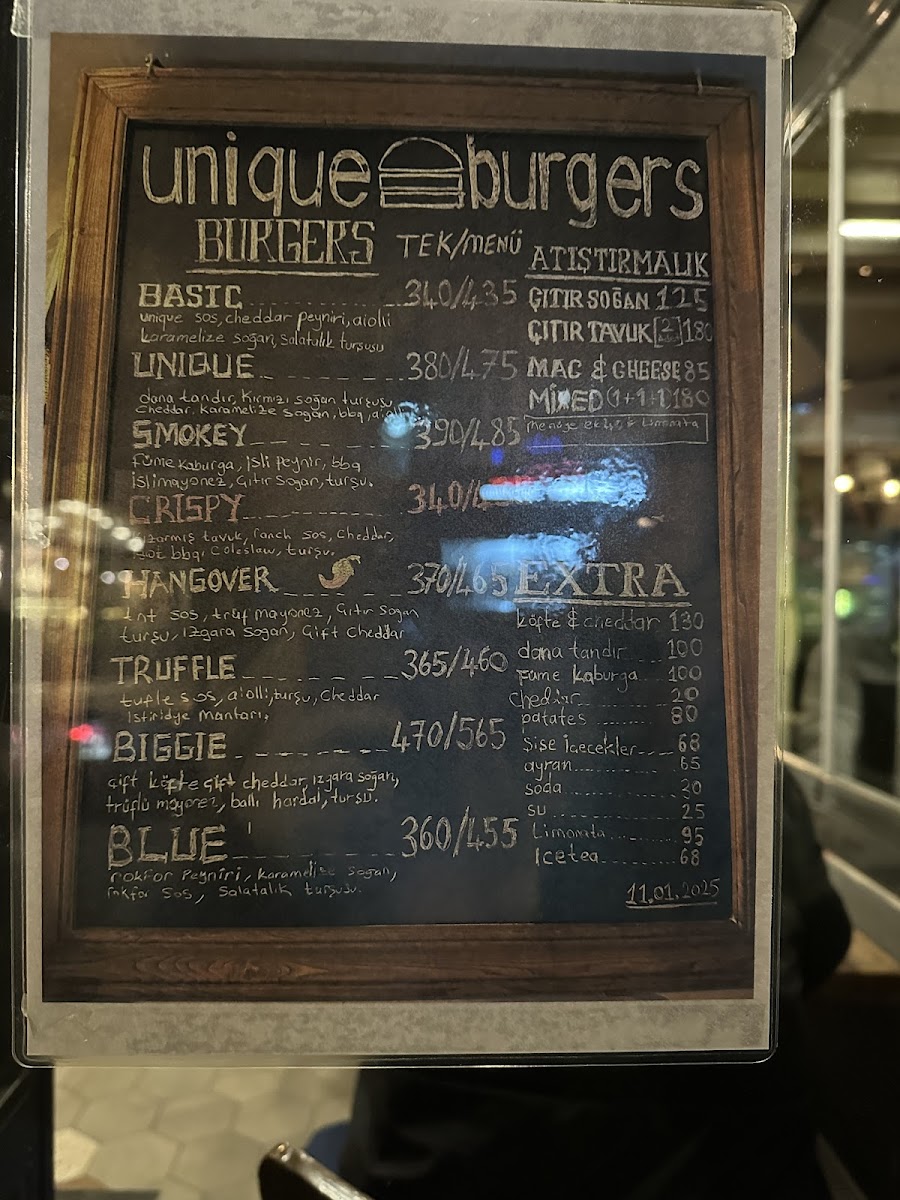 unique burgers
BURGERS TEK/MENÜ
BASIC 340/435
unique sos, cheddar peyniri, aioli
karamelize soğan, salatalık turşusu
UNIQUE 380/475
dana tandır, kırmızı soğan turşusu
cheddar, karamelize soğan, bbq, aiolli
SMOKEY 390/485
füme kaburga, isli peynir, bbq
islimayonez, çıtır soğan, turşu.
CRISPY 340/4
tavuk, ranch sos, cheddar,
bbq, coleslaw, turşu.
HANGOVER 370/465
tnt sos, trüf mayonez, çıtır soğan
turşu, ızgara soğan, çift cheddar
TRUFFLE 365/460
tufle sos, aiolli, turşu, cheddar
istiridye mantarı,
BIGGIE 470/565
çift köfte çift cheddar, ızgara soğan,
trüflü mayonez, ballı hardal, turşu.
BLUE 360/455
rokfor peyniri, karamelize soğan,
rokfor sos, salatalık turşusu.
ATIŞTIRMALIK
ÇITIR SOĞAN 125
ÇITIR TAVUK [2] 180
MAC & CHEESE 85
MİXED (1+1+1) 180
Limonata
EXTRA
köfte & cheddar 130
dana tandır 100
Füme kaburga 100
cheddar 20
patates 80
Şişe içecekler 68
ayran 65
soda
su 25
Limonata 95
Icetea 68
11.01.2025